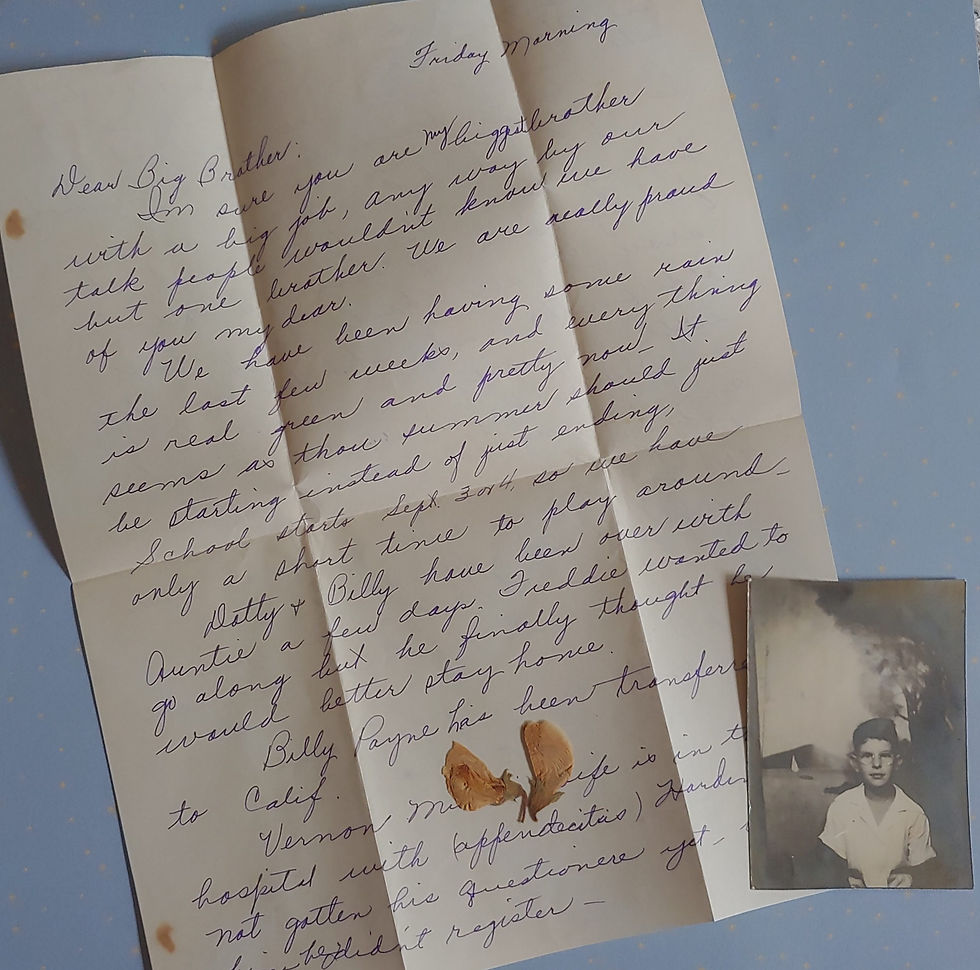 Friday Morning
Dear Big Brother:
Im sure you are my biggest brother
with a big job, any way by our
talk people wouldn't know we have
but one brother. We are really proud
of you my dear.
We have been having some rain
the last few weeks, and everything
is real green and pretty now - It
seems as thou summer should just
be starting instead of just ending,
School starts Sept. 3 or 4, so we have
only a short time to play around -
Dotty + Billy have been over with
Auntie a few days. Freddie wanted to
go along but he finally thought he
would better stay home.
Billy Payne has been transferre
to Calif.
Vernon M ife is in t
hospital with (appendecitas) Hardin
not gotten his questionere yet -
he didn't register -